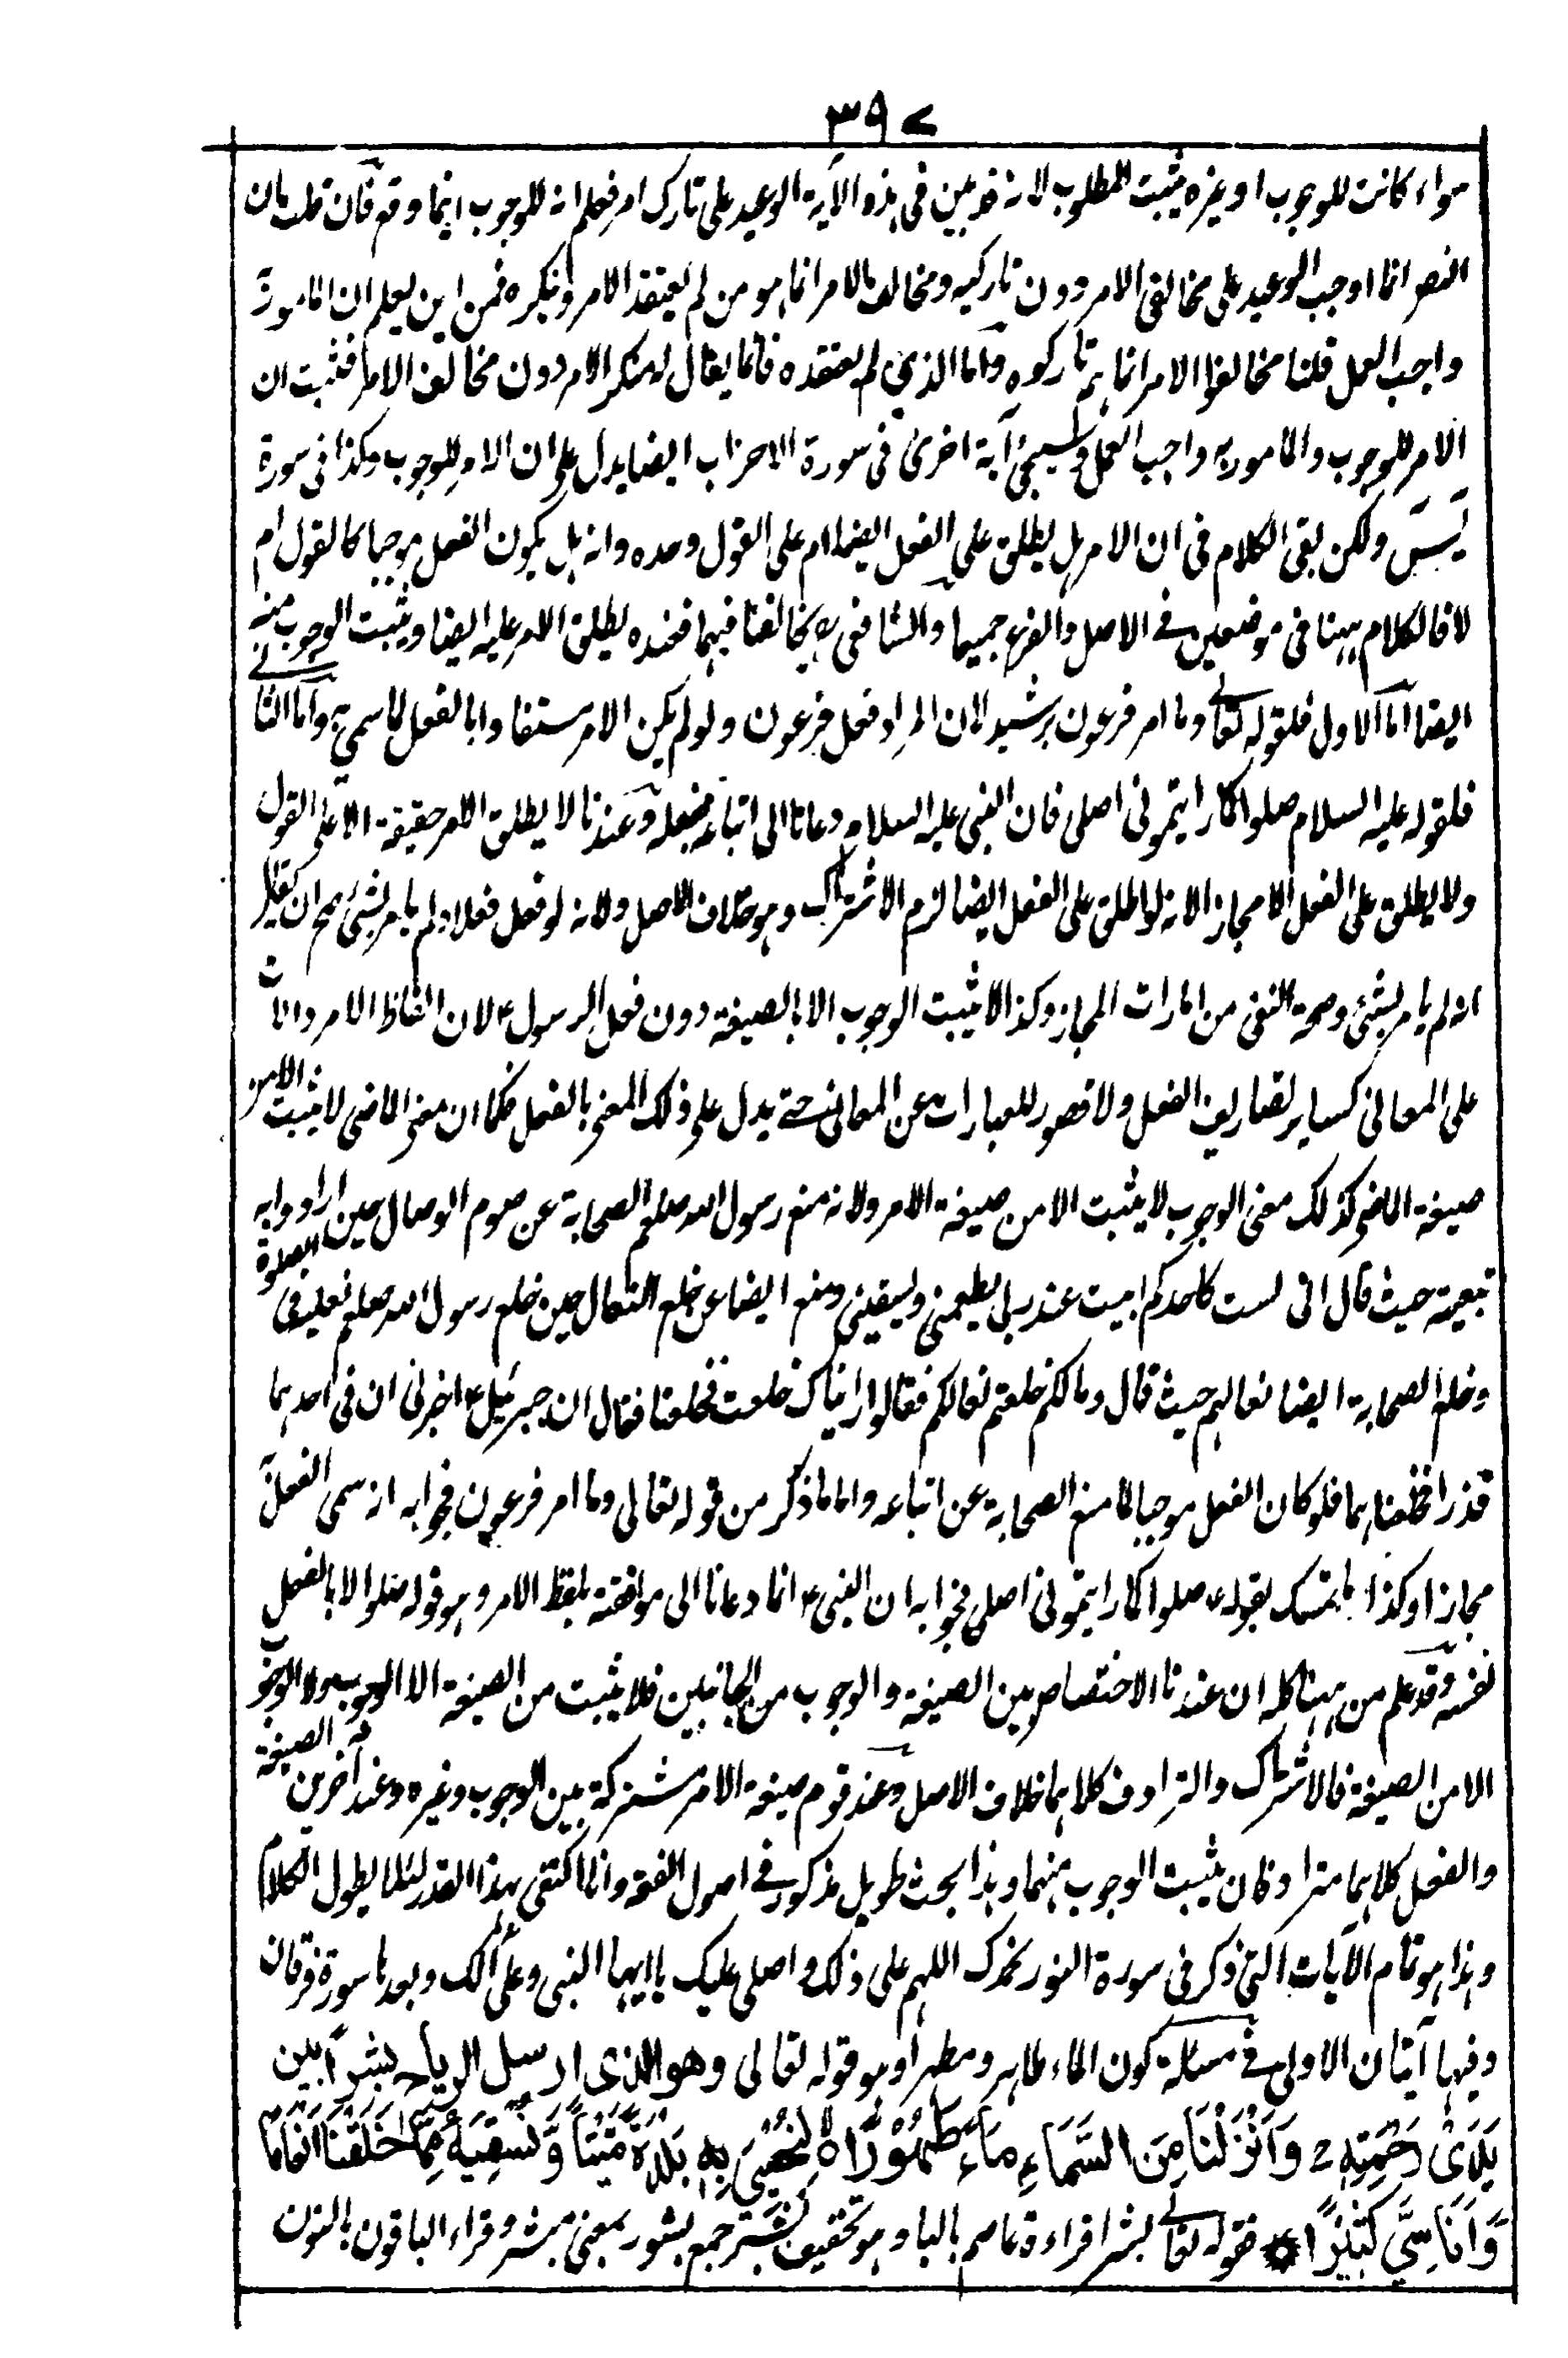 ۳۹۷
سواء كانت للوجوب او غيره يثبت المطلوب لانه قد بين فى هذه الآية الوعيد على تارك امر فعلم انه للوجوب اينما وقع فان قلت بان
النص انما اوجب الوعيد على مخالفى الامر دون تاركيه ومخالف الامر انما هو من لم يعتقد الامر وينكره فمن اين يعلم ان المامور به
واجب العمل قلنا مخالفوا الامر انما هم تاركوه واما الذى لم يعتقده فانما يقال له منكر الامر دون مخالف الامر فثبت ان
الامر للوجوب والمامور به واجب العمل وسيجئ آية اخرى فى سورة الاحزاب ايضا يدل على ان الامر للوجوب وهكذا فى سورة
يٰسٓ ولكن بقى الكلام فى ان الامر هل يطلق على الفعل ايضا ام على القول وحده وانه هل يكون الفعل موجبا كالقول ام
لا فالكلام ههنا فى موضعين فے الاصل والفرع جميعا والشافعى رح يخالفنا فيهما فعنده يطلق الامر عليه ايضا ويثبت الوجوب منه
ايضا اما الاول فلقوله تعالے وما امر فرعون برشيد لان المراد فعل فرعون ولو لم يكن الامر مستفادا بالفعل لما سمى به واما الثانے
فلقوله عليه السلام صلوا كما رايتمونى اصلى فان النبى عليه السلام دعانا الى اتباع فعله وعندنا لا يطلق الامر حقيقة الا على القول
ولا يطلق على الفعل الا مجازا لانه لو اطلق على الفعل ايضا لزم الاشتراك وهو خلاف الاصل ولانه لو فعل فعلا ولم يامر بشئ صح ان يقال
انه لم يامر بشئ وصحة النفى من امارات المجاز وكذا لا يثبت الوجوب الا بالصيغة دون فعل الرسول ع لان الفاظ الامر دالات
على المعانى كسائر تصاريف الفعل ولا قصور للعبارات عن المعانى حتے يدل على ذلك المعنى بالفعل فكما ان معنى الماضى لا يثبت الا من
صيغة الماضى كذلك معنى الوجوب لا يثبت الا من صيغة الامر ولانه منع رسول الله صلعم الصحابة عن صوم الوصال حين ارادوا به
تبعيته حيث قال انى لست كاحدكم ابيت عند ربى يطعمنى ويسقينى ومنع ايضا عن خلع النعال حين خلع رسول الله صلعم نعليه فى الصلوة
وخلع الصحابة ايضا نعالهم حيث قال ومالكم خلعتم نعالكم فقالوا رايناك خلعت فخلعنا فقال ان جبرئيل ع اخبرنى ان فى احدهما
قذرا فخلعناهما فلو كان الفعل موجبا لما منع الصحابة عن اتباعه واما ما ذكر من قوله تعالى وما امر فرعون فجوابه انه سمى الفعل به
مجازا وكذا ما يتمسك بقوله ع صلوا كما رايتمونى اصلى فجوابه ان النبى ع انما دعانا الى موافقته بلفظ الامر وهو قوله صلوا لا بالفعل
نفسه وقد علم من ههنا كله ان عندنا الاختصاص بين الصيغة والوجوب من الجانبين فلا يثبت من الصيغة الا الوجوب ولا الوجوب
الا من الصيغة فالاشتراك والترادف كلاهما خلاف الاصل وعند قوم صيغة الامر مشتركة بين الوجوب وغيره وعند آخرين الصيغة
والفعل كلاهما مترادفان يثبت الوجوب منهما وهذا بحث طويل مذكور فے اصول الفقه وانما اكتفى بهذا القدر لئلا يطول الكلام
وهذا هو تمام الآيات التى ذكر فى سورة النور نحمدك اللهم على ذلك واصلى عليك ياايها النبى وعلى آلك وبعدها سورة فرقان
وفيها آيتان الاولى فے مسئلة كون الماء طاهر ومطهرا وهو قوله تعالى وهو الذى ارسل الرياح بشرًا بين
يَدَىْ رَحْمَتِهٖ وَاَنْزَلْنَا مِنَ السَّمَاءِ مَاءً طَهُوْرًا لِنُحْيِىَ بِهٖ بَلْدَةً مَّيْتًا وَّنُسْقِيَهٗ مِمَّا خَلَقْنَا اَنْعَامًا
وَّاَنَاسِىَّ كَثِيْرًا فقوله تعالے بشرا قراءة عاصم بالباء وهو تخفيف بُشُر جمع بشور بمعنى مبشر وقراء الباقون بالنون